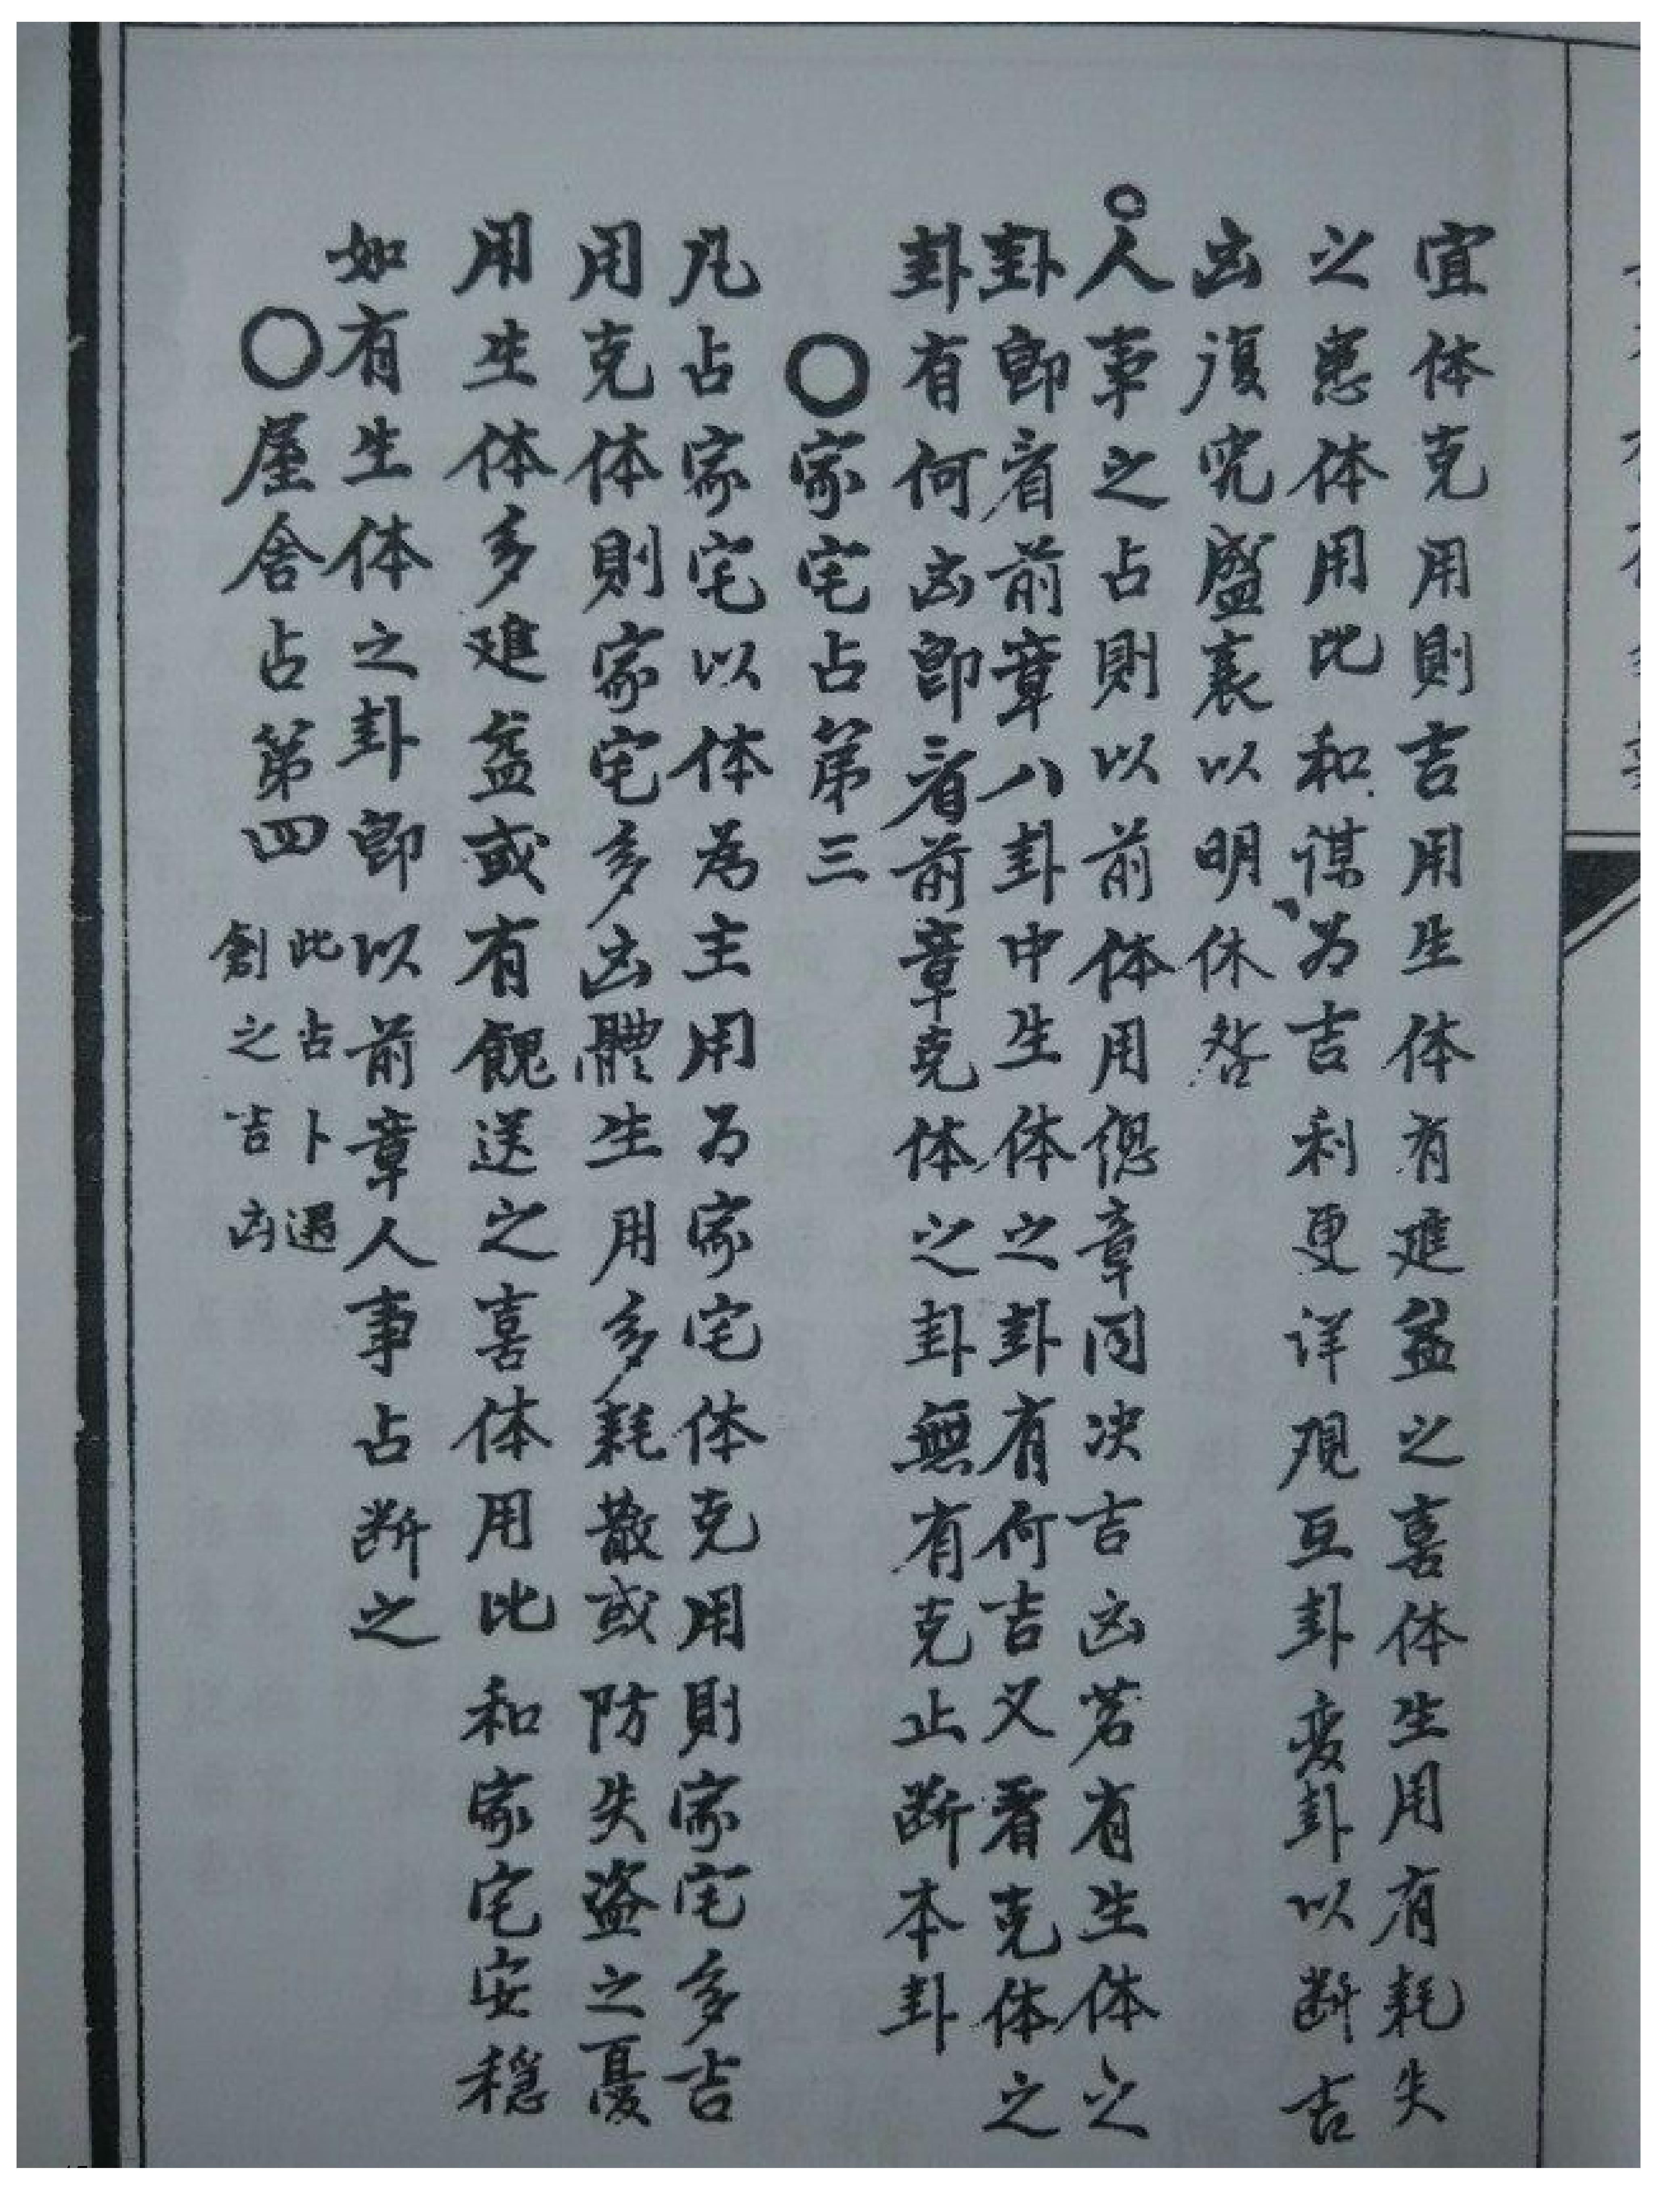 宜体克用則吉用生体有進益之喜体生用有耗失
之患体用比和謀为吉利更详观互卦变卦以断吉
凶復究盛衰以明休咎
○人事之占則以前体用總章同决吉凶若有生体之
卦即看前章八卦中生体之卦有何吉又看克体之
卦有何凶即看前章克体之卦無有克止断本卦
○家宅占第三
凡占家宅以体為主用为家宅体克用則家宅多吉
用克体則家宅多凶體生用多耗散或防失盗之憂
用生体多進益或有餽送之喜体用比和家宅安穏
如有生体之卦即以前章人事占断之
○屋舍占第四
此占卜遇
創之吉凶